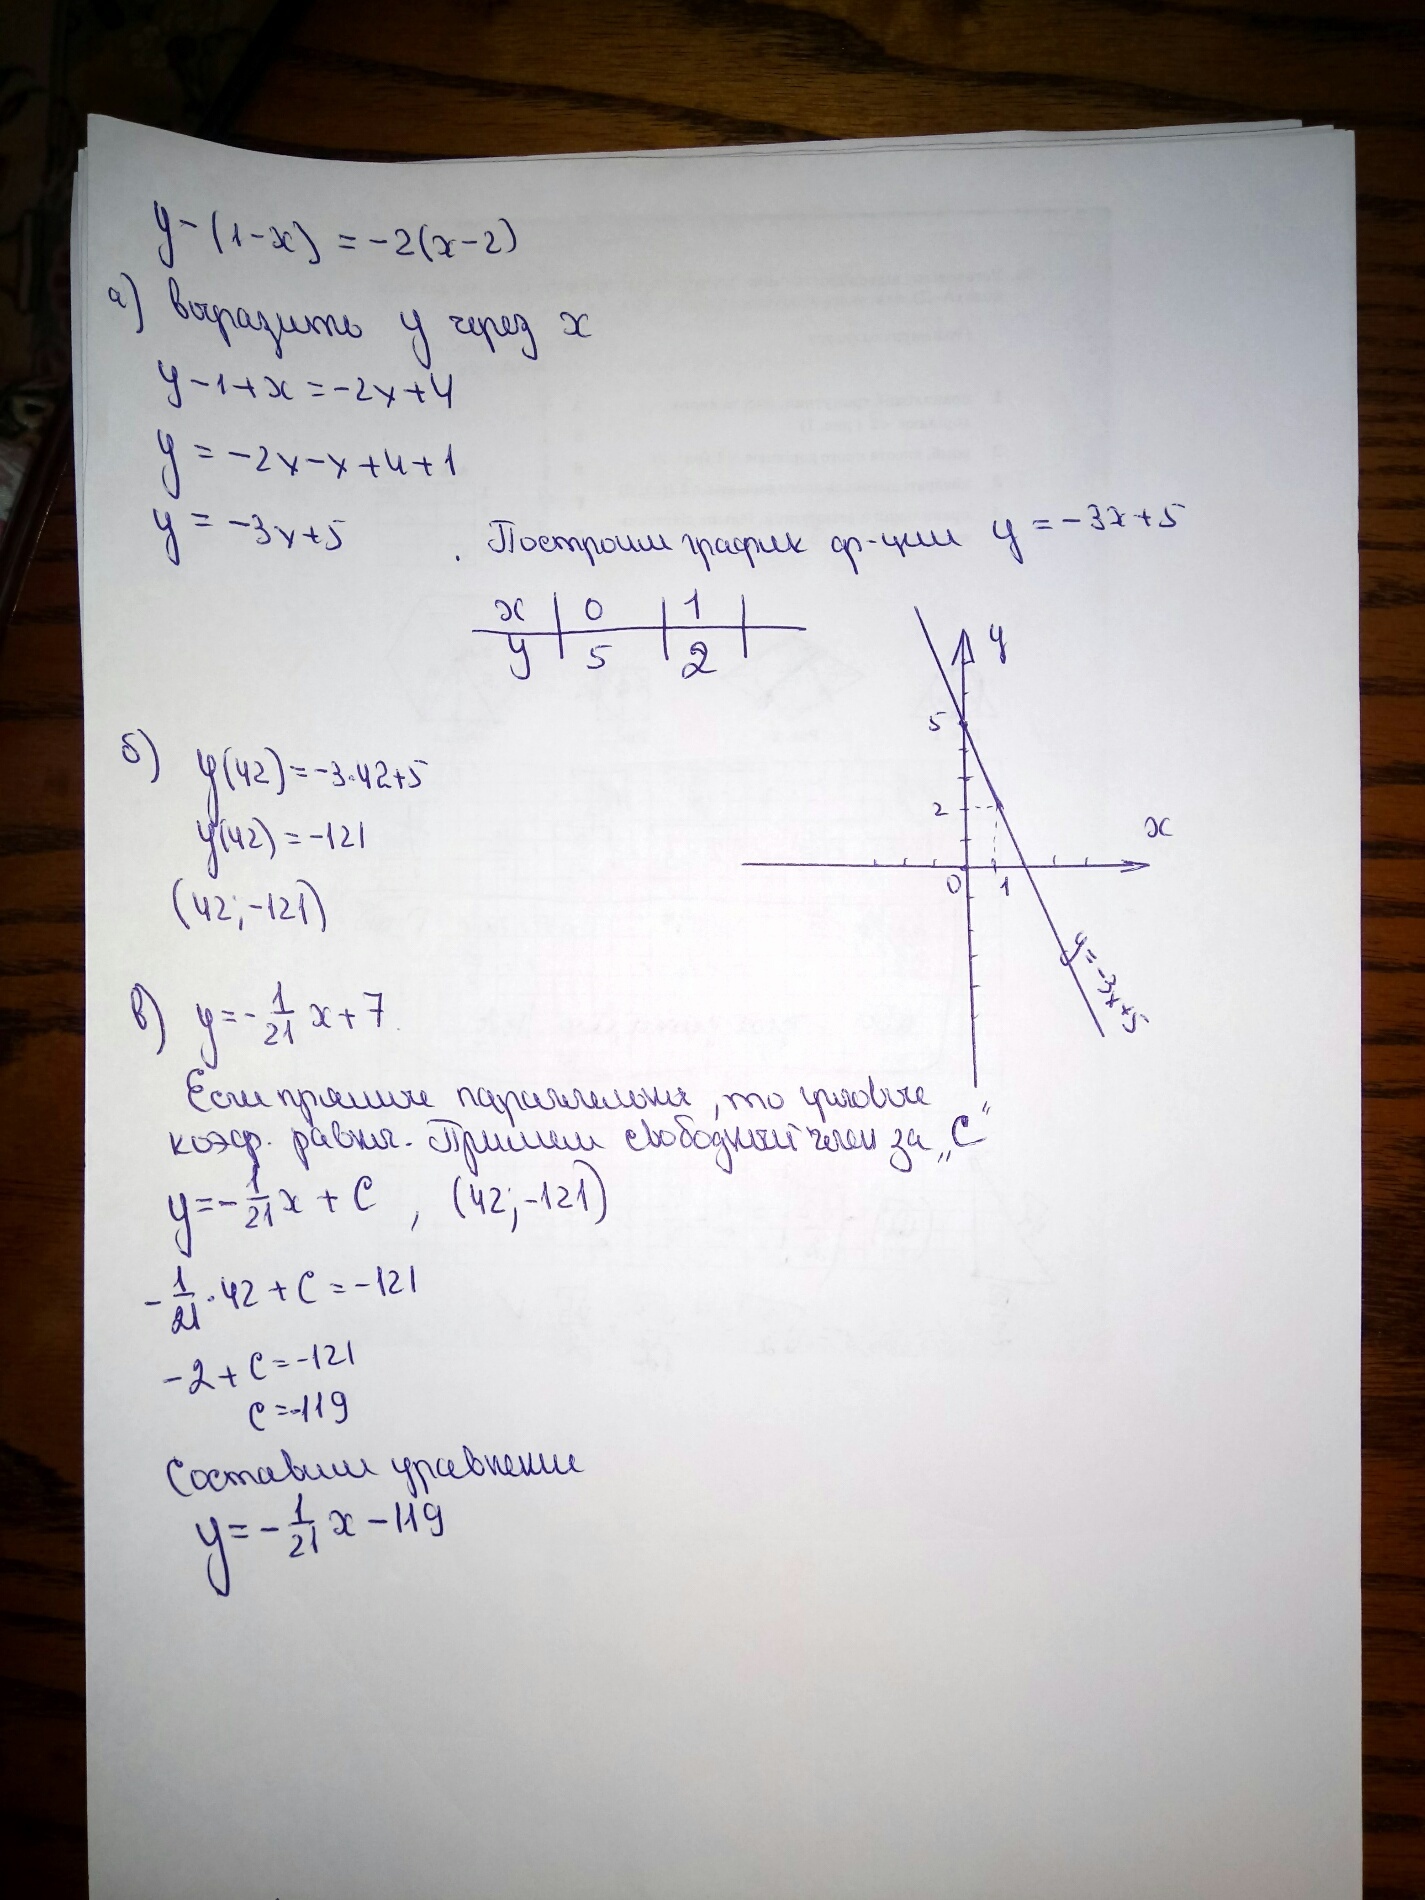 y-(1-x)=-2(x-2)
а) выразить y через x
y-1+x=-2x+4
y=-2x-x+4+1
y=-3x+5. Построим график ф-ции y=-3x+5
x | 0 | 1 |
y | 5 | 2
y
5
2
x
0 1
y=-3x+5
б) y(42)=-3·42+5
y(42)=-121
(42;-121)
в) y=-1/21 x+7.
Если прямые параллельны, то угловые
коэф. равны. Примем свободный член за „C“
y=-1/21 x+C, (42;-121)
-1/21·42+C=-121
-2+C=-121
C=-119
Составим уравнение
y=-1/21 x-119